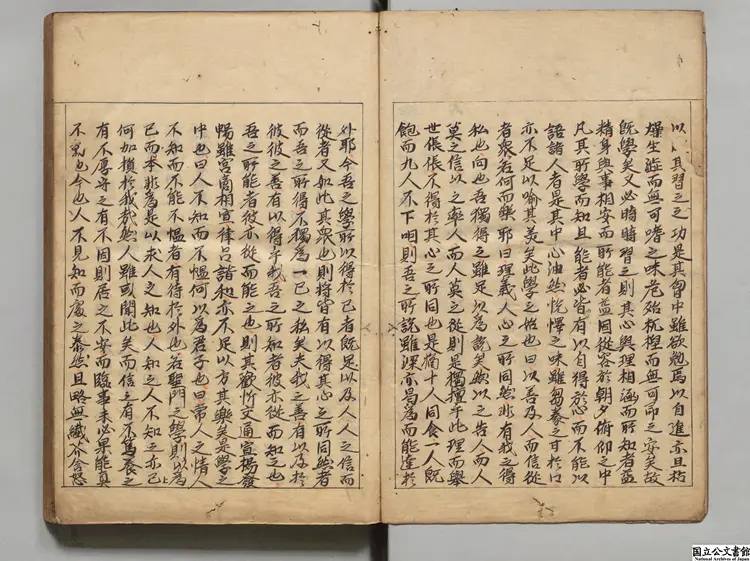 以 其習之之功是其胷中雖欲勉焉以自進亦且枯
燥生澁而無可嗜之味危殆杌陧而無可即之安矣故
既學矣又必時時習之則其心與理相涵而所知者益
精身與事相安而所能者益固從容於朝夕俯仰之中
凡其所學而知且能者必皆有以自得於心而不能以
語諸人者是其中心油然悅懌之味雖芻豢之甘於口
亦不足以喻其美矣此學之始也曰以善及人而信從
者衆若何而樂耶曰理義人心之所同然非有我之得
私也向也吾獨得之雖足以為說矣然以之告人而人
莫之信以之率人而人莫之從則是獨擅乎此理而舉
世倀倀不得於其心之所同也是猶十人同食一人既
飽而九人不下咽則吾之所說雖深亦曷為而能達於
外耶今吾之學所以得於己者既足以及人人之信而
從者又如此其衆也則將皆有以得其心之所同然者
而吾之所得不獨為一己之私矣夫我之善有以及於
彼彼之善有以得乎我吾之所知者彼亦從而知之也
吾之所能者彼亦從而能之也則其歡忻交通宣揚發
暢雖宮商相宣律呂諧和亦不足以方其樂矣是學之
中也曰人不知而不慍何以為君子也曰常人之情人
不知而不能不慍者有待於外也若聖門之學則以為
己而本非為是以求人之知也人知之人不知之亦已
何加損於我哉然人雖或聞此矣而信之有不篤養之
有不厚守之有不固則居之不安而臨事未必果能真
不慍也今也人不見知而處之泰然且略無纖芥含怒
上
国立公文書館
National Archives of Japan